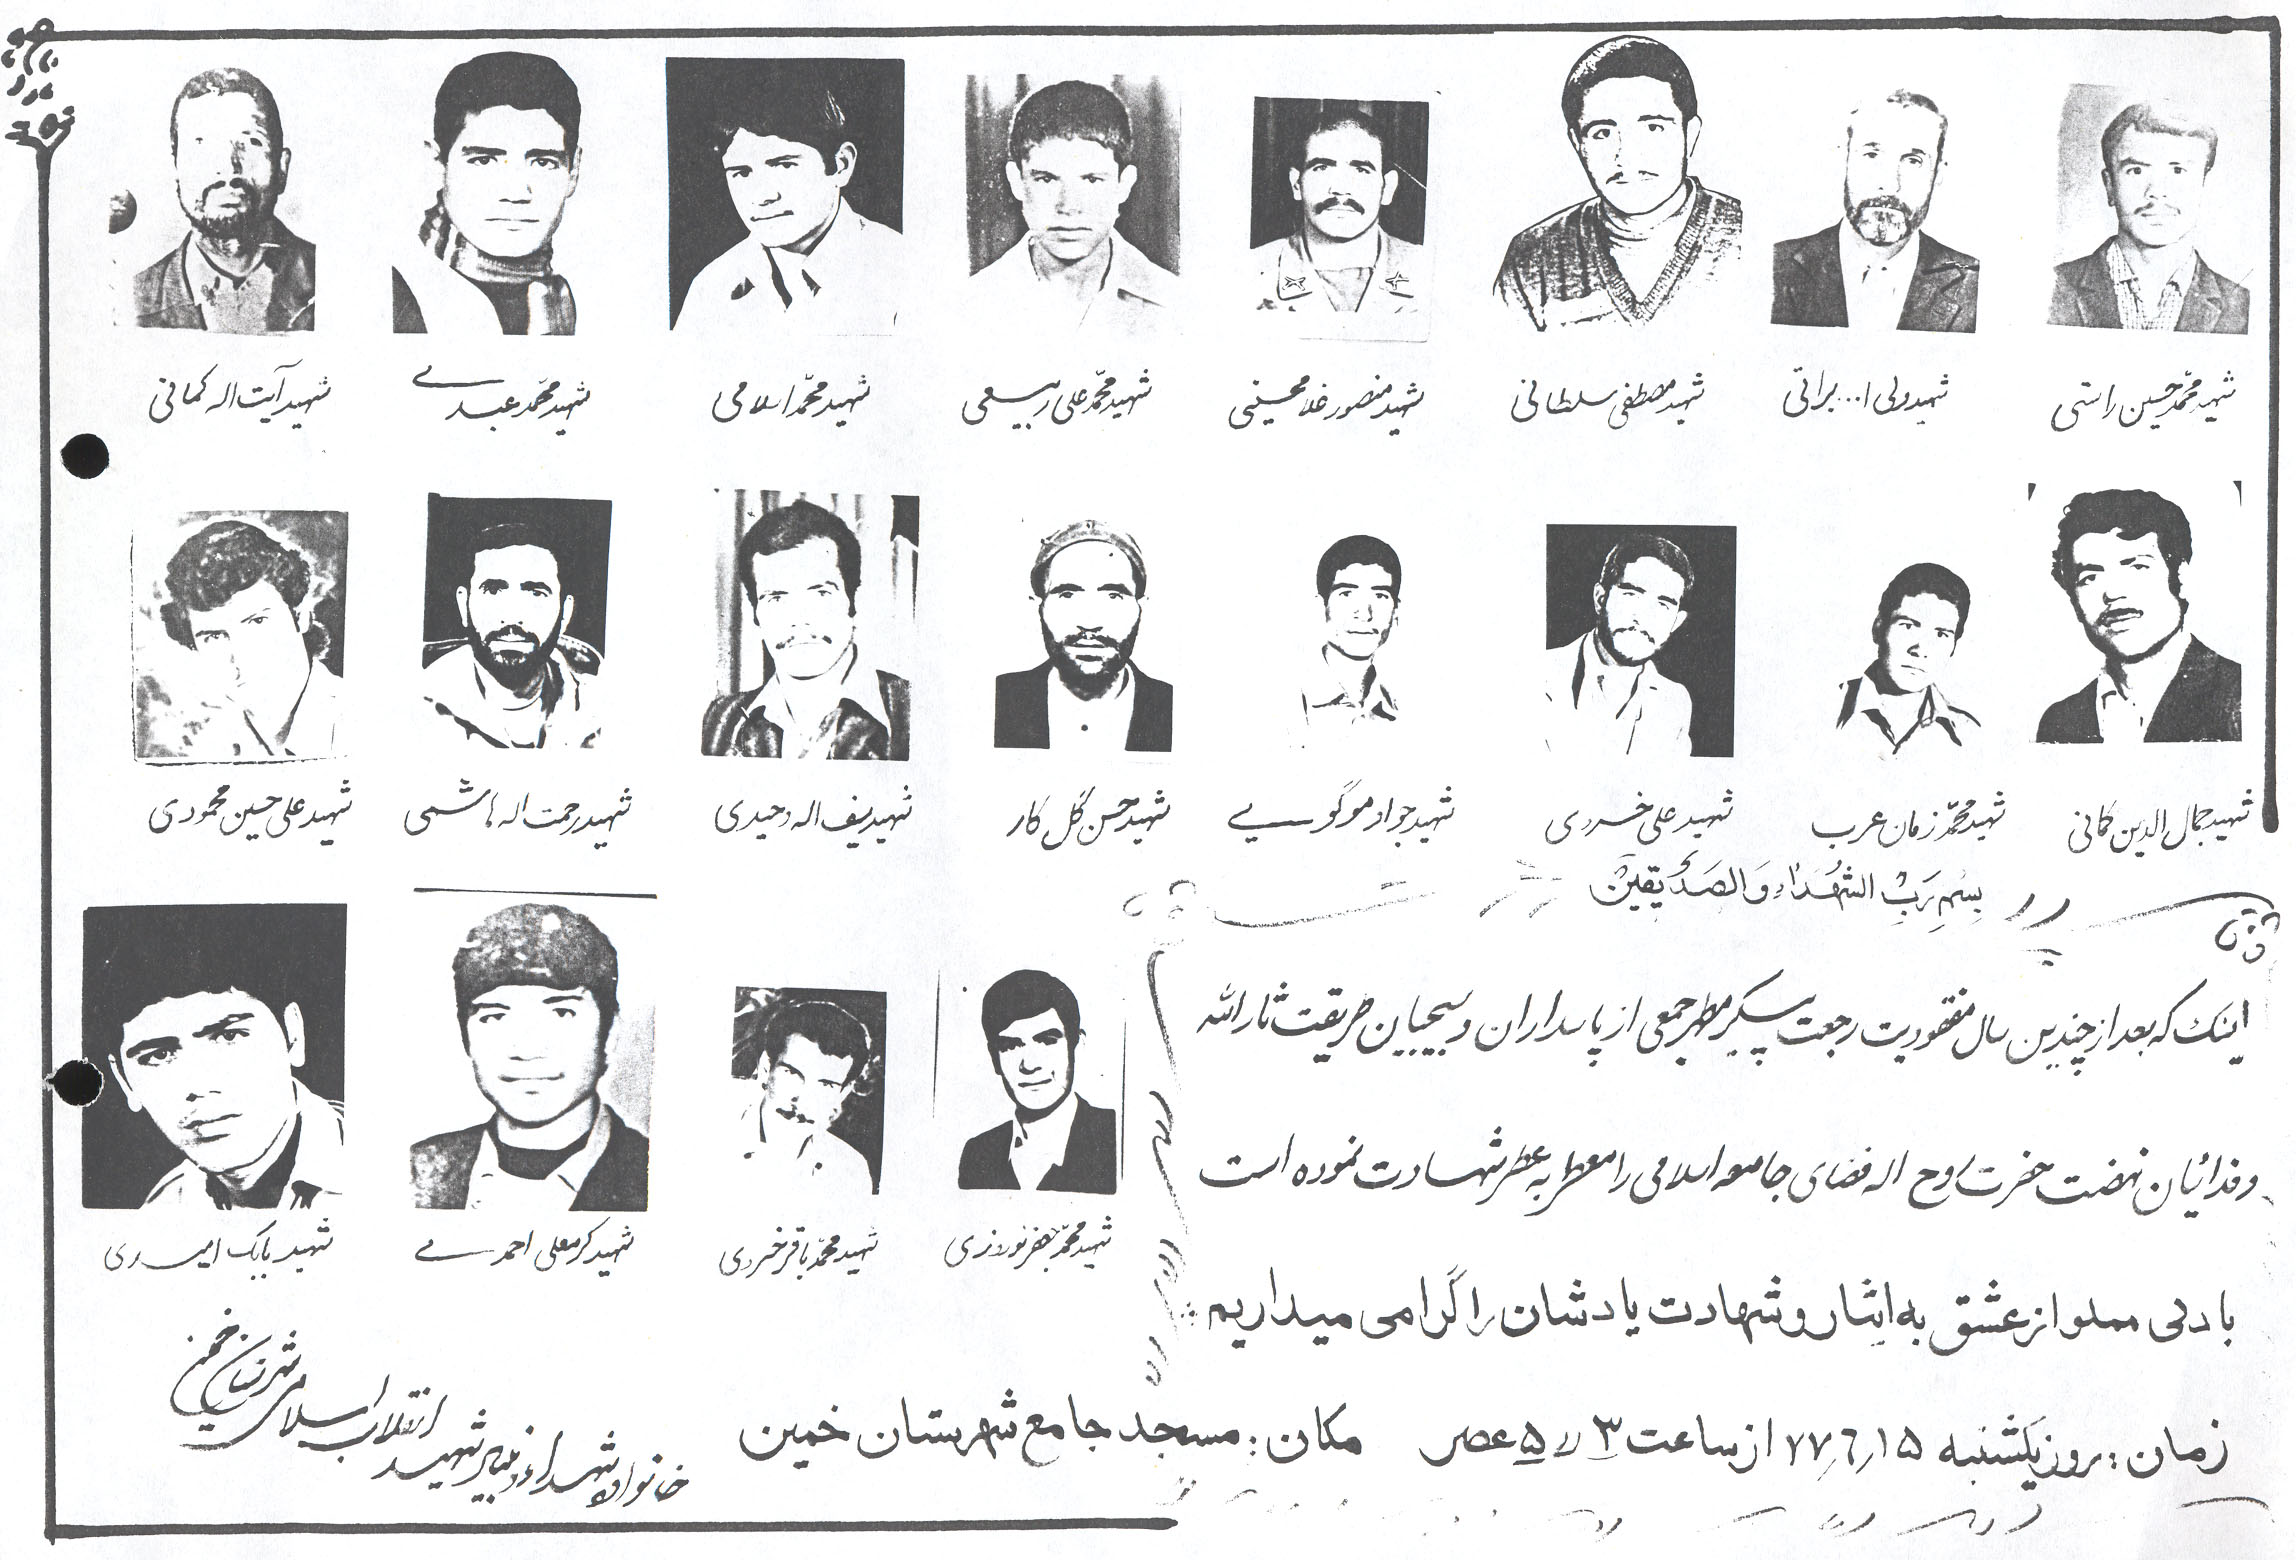 شهید محمد حسین راستی
شهید ولی ا... براتی
شهید مصطفی سلطانی
شهید منصور غلامحسینی
شهید محمد علی ربیعی
شهید محمد اسلامی
شهید محمد عبدی
شهید آیت اله کمانی
شهید جمال الدین کمانی
شهید محمد زمان عرب
شهید علی خسروی
شهید جواد موگویی
شهید حسن گل کار
شهید سیف اله وحیدی
شهید رحمت اله هاشمی
شهید علی حسین محمودی
بِسْمِ رَبِّ الشُهَداءِ وَالصِدّیقینْ
اینک که بعد از چندین سال مفقودیت رجعت پیکر مطهر جمعی از پاسداران و بسیجیان طریقت ثارالله
وفدائیان نهضت حضرت روح اله فضای جامعه اسلامی را معطر به عطر شهادت نموده است
با دلی مملو از عشق به ایثار و شهادت یادشان را گرامی میداریم
شهید محمد جعفر نوروزی
شهید محمد باقر خسروی
شهید کرمعلی احمدی
شهید بابک امیدی
زمان: روز یکشنبه ۷۷٫۶٫۱۵ از ساعت ۳ الی ۵ عصر مکان: مسجد جامع شهرستان خمین
خانواده شهداء و بنیاد شهید
انقلاب اسلامی
شهرستان خمین